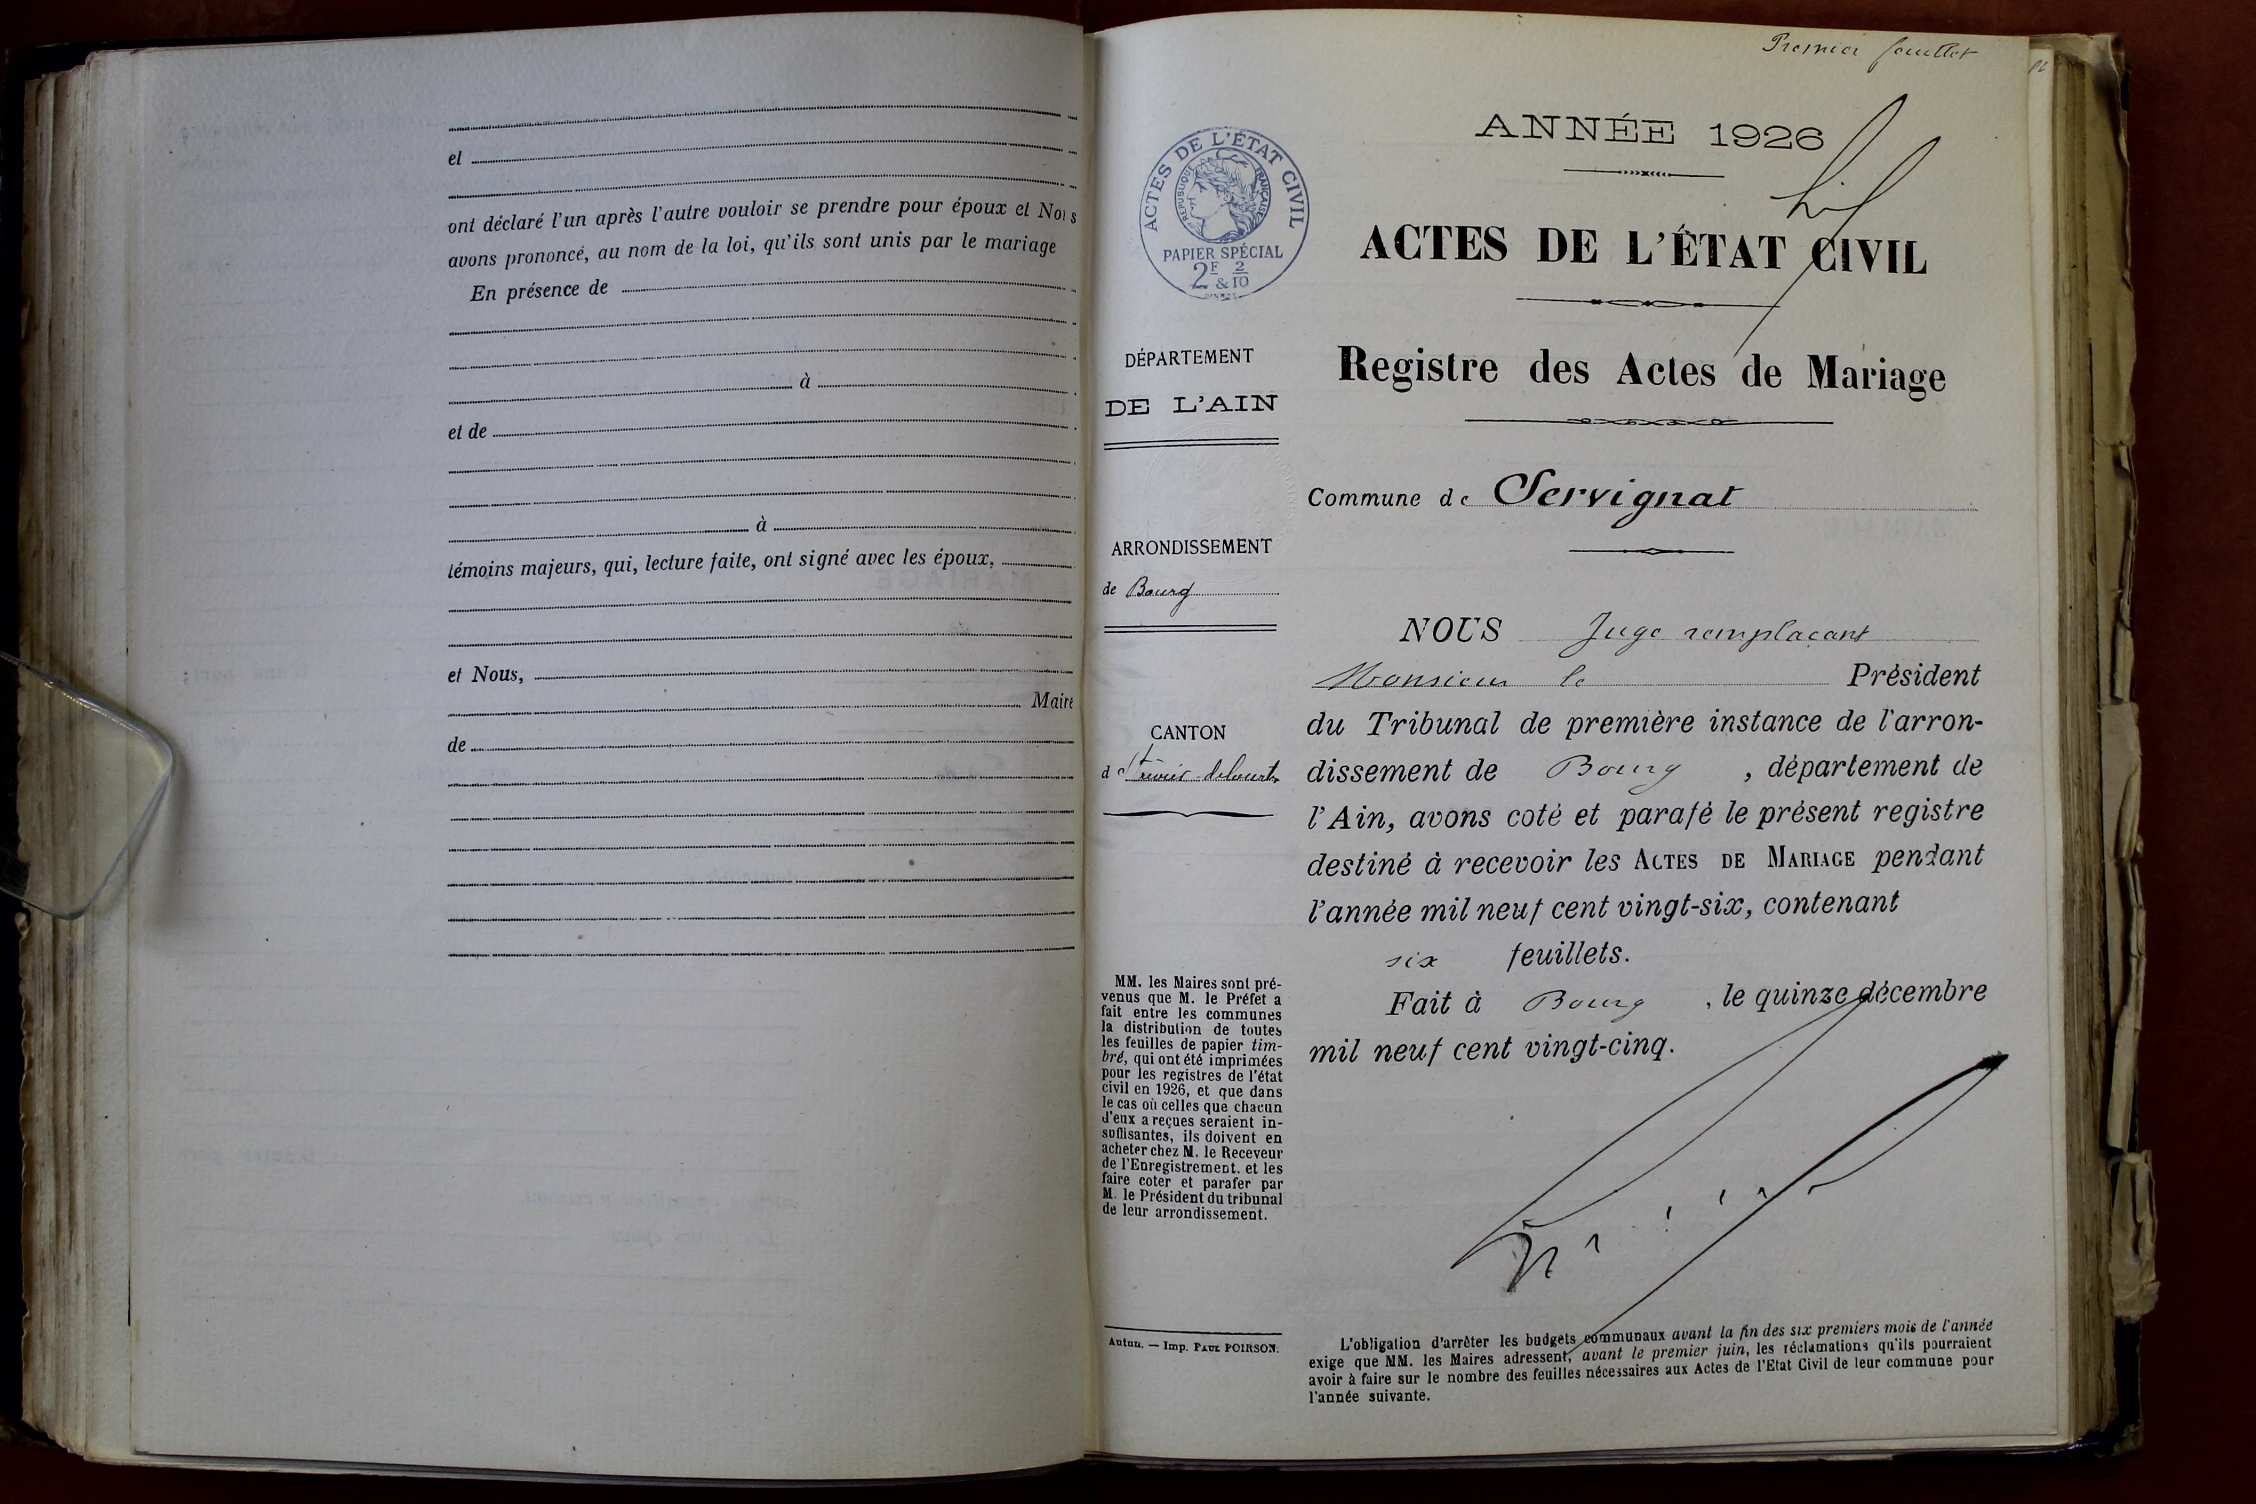 et
ont déclaré l'un après l'autre vouloir se prendre pour époux et Nous
avons prononcé, au nom de la loi, qu'ils sont unis par le mariage
En présence de
à
et de
à
témoins majeurs, qui, lecture faite, ont signé avec les époux,
et Nous,
Maire
de
Premier feuillet
ACTES DE L'ÉTAT CIVIL
RÉPUBLIQUE FRANÇAISE
PAPIER SPÉCIAL
2F & 2/10
DÉPARTEMENT
DE L'AIN
ARRONDISSEMENT
de Bourg
CANTON
de St Trivier-de Courtes
MM. les Maires sont pré-
venus que M. le Préfet a
fait entre les communes
la distribution de toutes
les feuilles de papier tim-
bré, qui ont été imprimées
pour les registres de l'état
civil en 1926, et que dans
le cas où celles que chacun
d'eux a reçues seraient in-
suffisantes, ils doivent en
acheter chez M. le Receveur
de l'Enregistrement. et les
faire coter et parafer par
M. le Président du tribunal
de leur arrondissement.
Autun. — Imp. PAUL POIRSON.
ANNÉE 1926
ACTES DE L'ÉTAT CIVIL
Registre des Actes de Mariage
Commune de Servignat
NOUS Juge remplaçant
Monsieur le Président
du Tribunal de première instance de l'arron-
dissement de Bourg, département de
l'Ain, avons coté et parafé le présent registre
destiné à recevoir les ACTES DE MARIAGE pendant
l'année mil neuf cent vingt-six, contenant
six feuillets.
Fait à Bourg, le quinze décembre
mil neuf cent vingt-cinq.
L'obligation d'arrêter les budgets communaux avant la fin des six premiers mois de l'année
exige que MM. les Maires adressent, avant le premier juin, les réclamations qu'ils pourraient
avoir à faire sur le nombre des feuilles nécessaires aux Actes de l'Etat Civil de leur commune pour
l'année suivante.